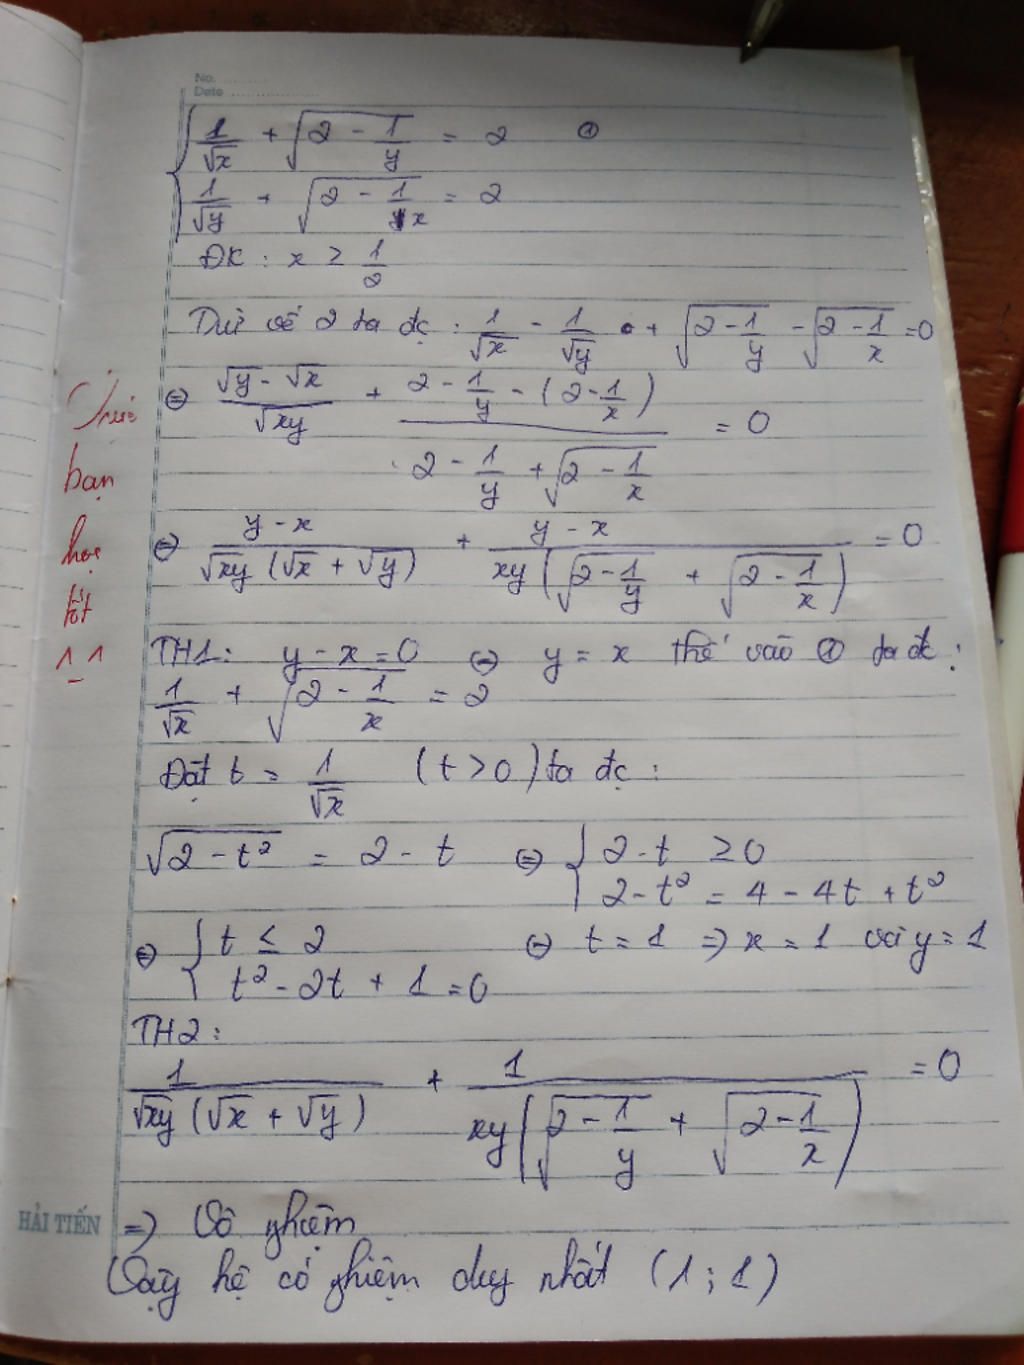 No. ..........
Date ..................
{ 1/√x + √(2 - 1/y) = 2 ①
{ 1/√y + √(2 - 1/x) = 2
ĐK : x ≥ 1/2
Trừ vế 2 ta đc : 1/√x - 1/√y + √(2 - 1/y) - √(2 - 1/x) = 0
⇔ (√y - √x)/√xy + (2 - 1/y - (2 - 1/x))/(2 - 1/y + √(2 - 1/x)) = 0
⇔ (y - x)/(√xy (√x + √y)) + (y - x)/(xy(√(2 - 1/y) + √(2 - 1/x))) = 0
TH1: y - x = 0 ⇔ y = x thế vào ① ta đc :
1/√x + √(2 - 1/x) = 2
Đặt t = 1/√x (t > 0) ta đc :
√(2 - t²) = 2 - t ⇔ { 2 - t ≥ 0
{ 2 - t² = 4 - 4t + t²
⇔ { t ≤ 2 ⇔ t = 1 ⇒ x = 1 và y = 1
{ t² - 2t + 1 = 0
TH2 :
1/(√xy (√x + √y)) + 1/(xy(√(2 - 1/y) + √(2 - 1/x))) = 0
⇒ Vô nghiệm
Vậy hệ có nghiệm duy nhất (1 ; 1)
Chúc
bạn
học
tốt
^_^
HẢI TIẾN